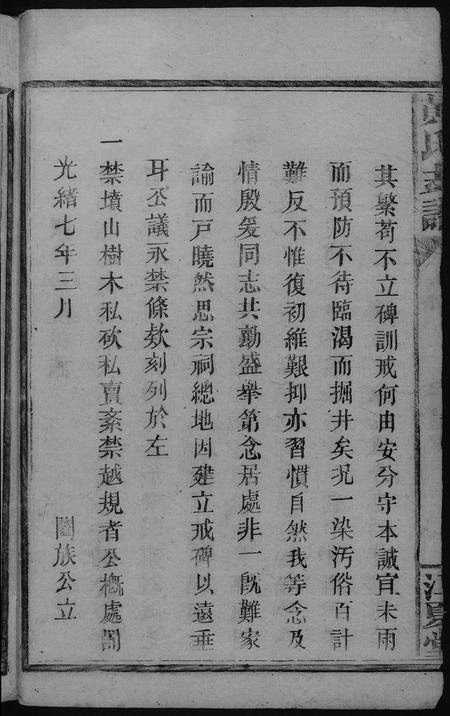 其繁苟不立碑訓戒何由安分守本誠宜未雨
而預防不待臨渴而掘井矣況一染汚俗百計
難反不惟復初維艱抑亦習慣自然我等念及
情殷爰同志共勷盛舉第念居處非一旣難家
諭而戶曉然思宗祠總地因建立戒碑以遠垂
耳公議永禁條欵刻列於左
一禁墳山樹木私砍私賣紊禁越規者公概處罰
光緒七年三月 闔族公立
江夏堂